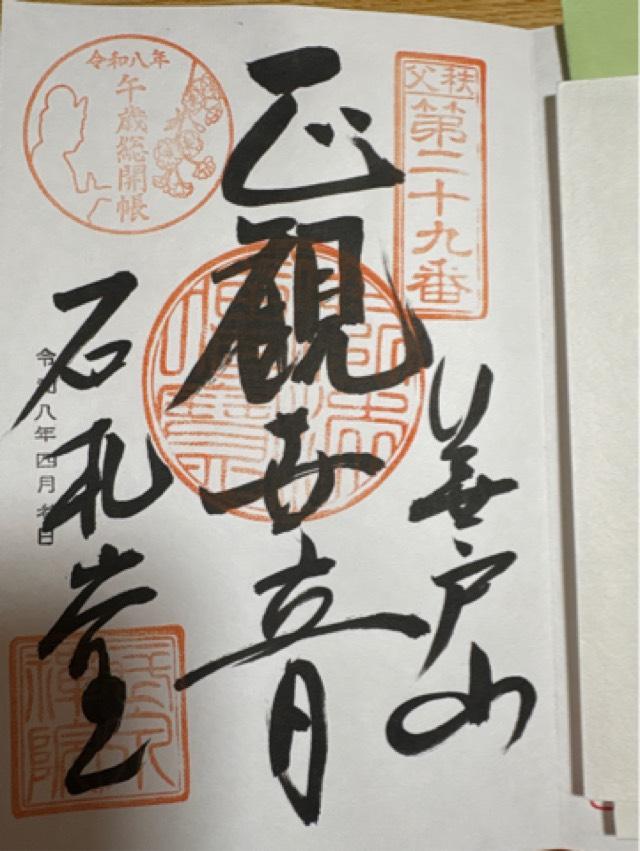 秩父
第二十九番
笹戸山
正観世音
石札堂
令和八年
午歳総開帳
令和八年四月
佛法僧寶